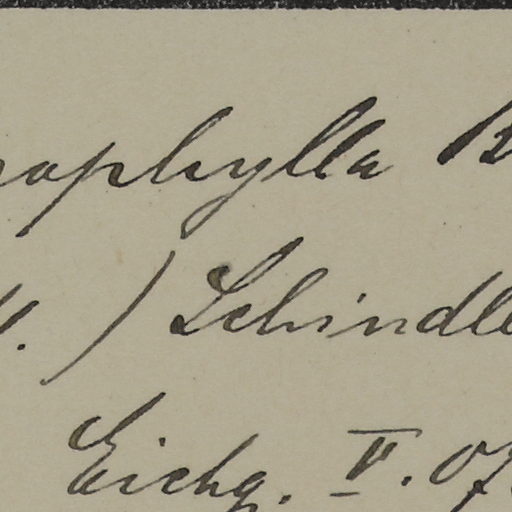 raophylla B
) Schindle
Eichg. V. 07